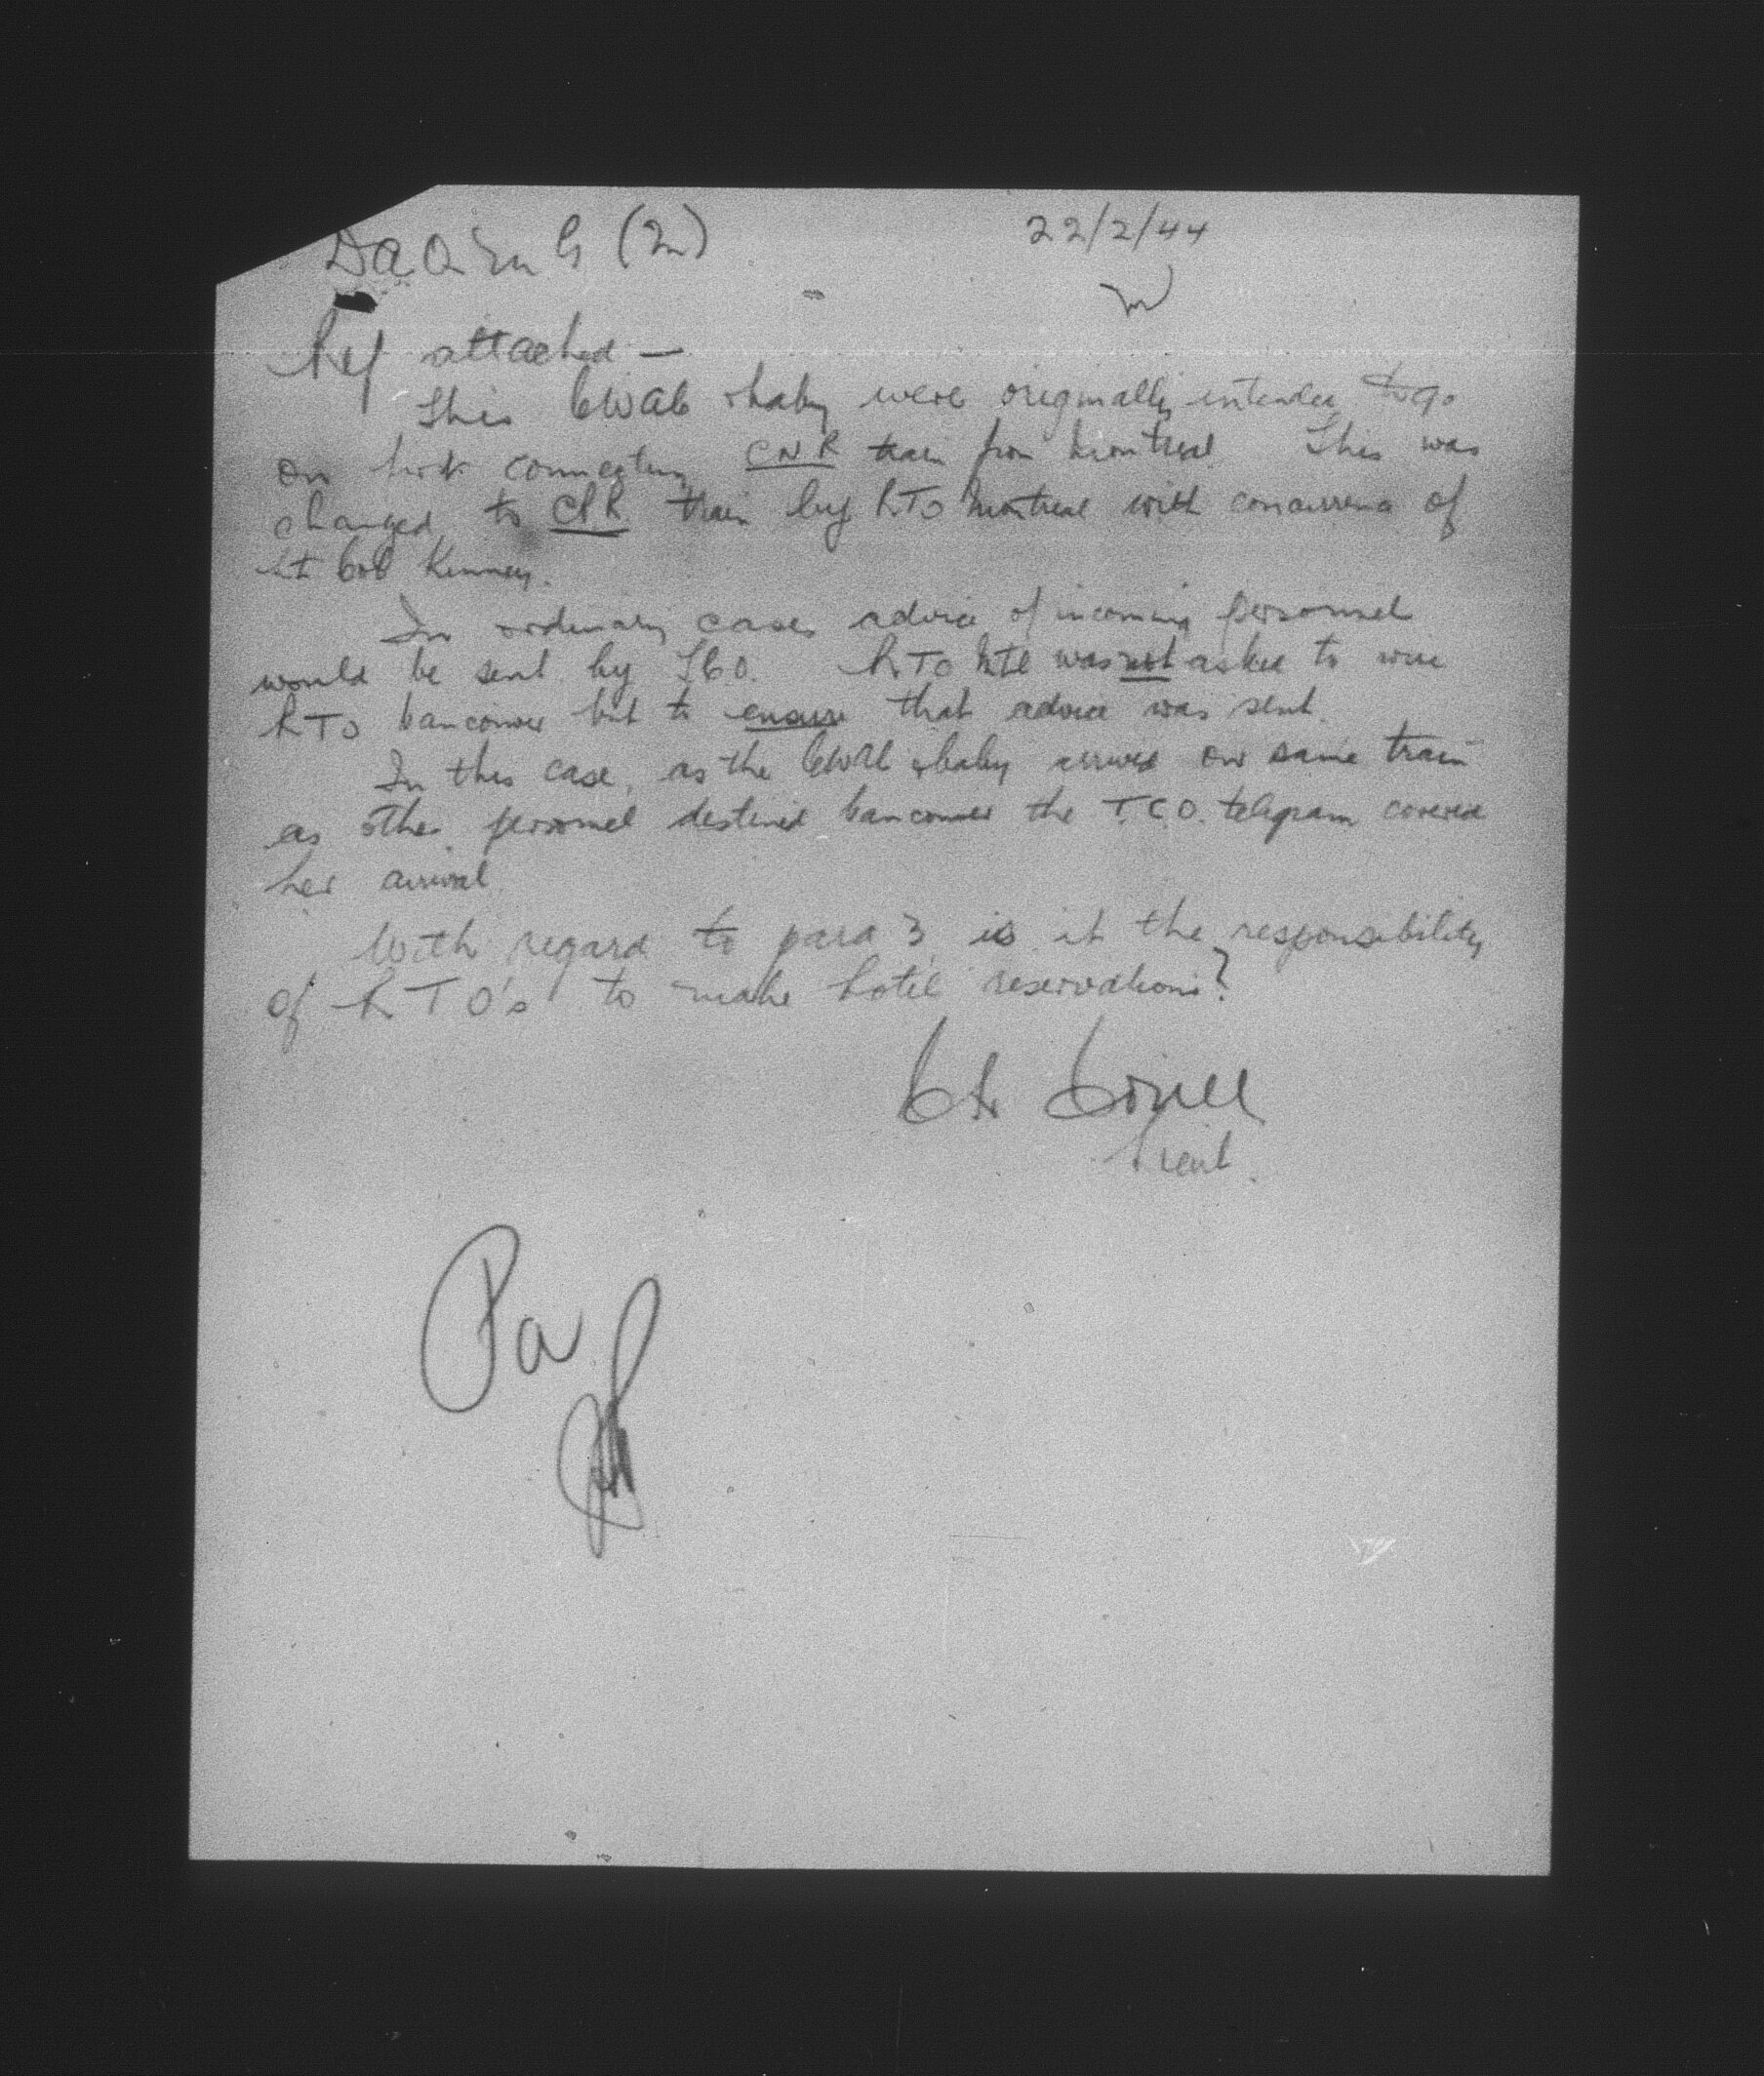 DAQMG (M) 22/2/44
Ref attached —
This CWAC & baby were originally intended to go
on first connecting CNR train from Montreal. This was
changed to CPR train by RTO Montreal with concurrence of
Lt Col Kenney.
In ordinary cases advice of incoming personnel
would be sent by TCO. RTO Mtl was not asked to wire
RTO Vancouver but to ensure that advice was sent.
In this case, as the CWAC & baby arrived on same train
as other personnel destined Vancouver the T.C.O. telegram covered
her arrival.
With regard to para 3 is it the responsibility
of RTO's to make hotel reservations?
Lieut.
Pa